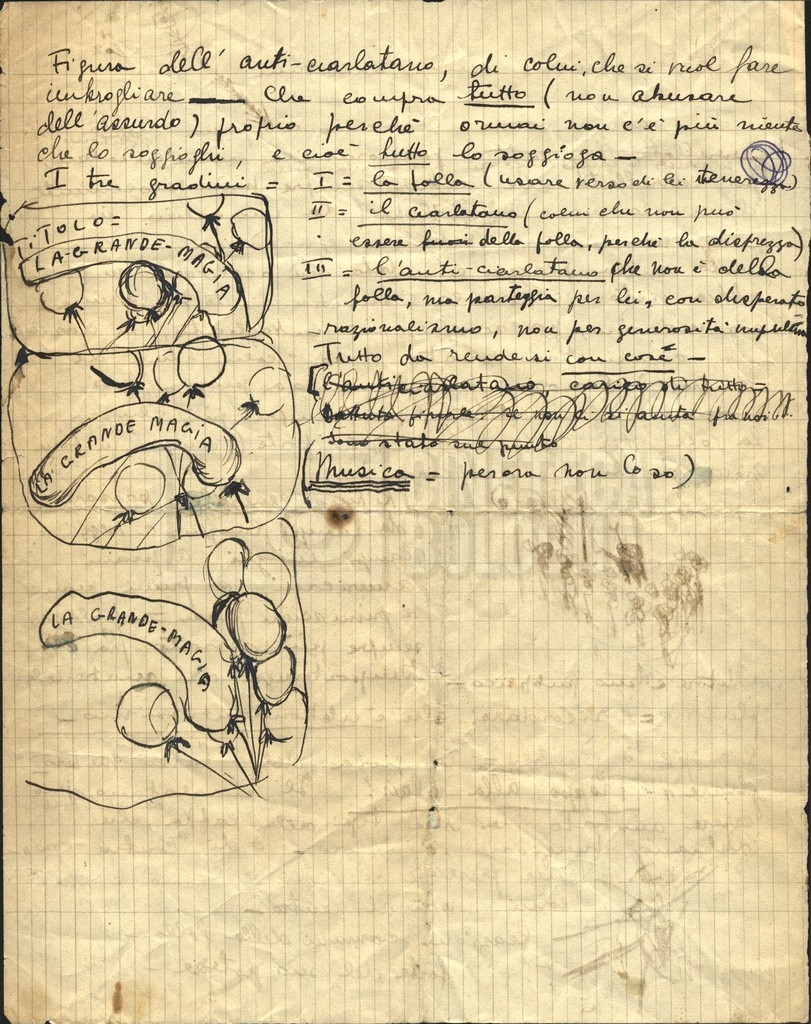 Figura dell'anti-ciarlatano, di colui, che si vuol fare
imbrogliare — Che compra tutto (non abusare
dell'assurdo) proprio perchè ormai non c'è più niente
che lo soggioghi, e cioè tutto lo soggioga —
I tre gradini = I = la folla (usare verso di lei tenerezza)
II = il ciarlatano (colui che non può
essere fuori della folla, perchè la disprezza)
III = l'anti-ciarlatano che non è della
folla, ma parteggia per lei, con disperato
razionalismo, non per generosità
Tutto da rendersi con cose —
L'anticiarlatano carico di tutto —
Battuta finale se non ci si aiuta fra noi
sono stato sul punto
(Musica = per ora non lo so)
TITOLO =
LA-GRANDE-MAGIA
LA GRANDE MAGIA
LA GRANDE-MAGIA